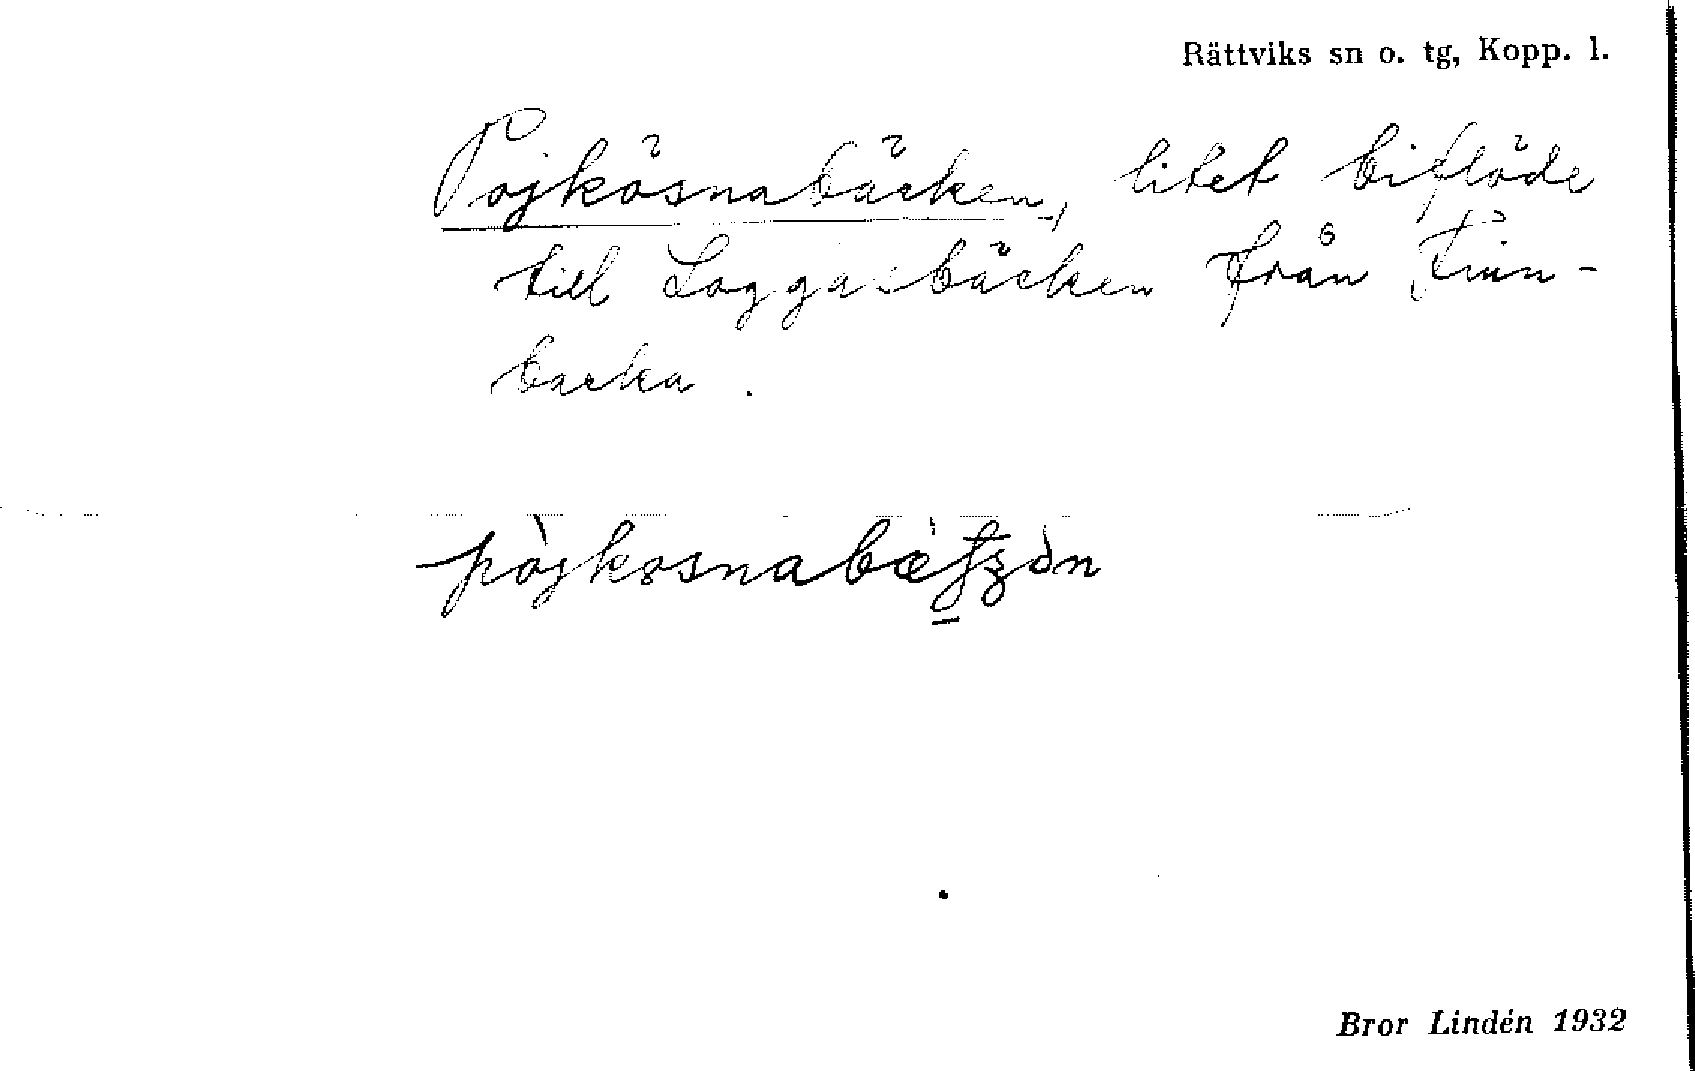 Rättviks sn o. tg, Kopp. l.
Pojkösnabäcken, litet biflöde
till Loggasbäcken från Finn-
backa.
Bror Lindén 1932